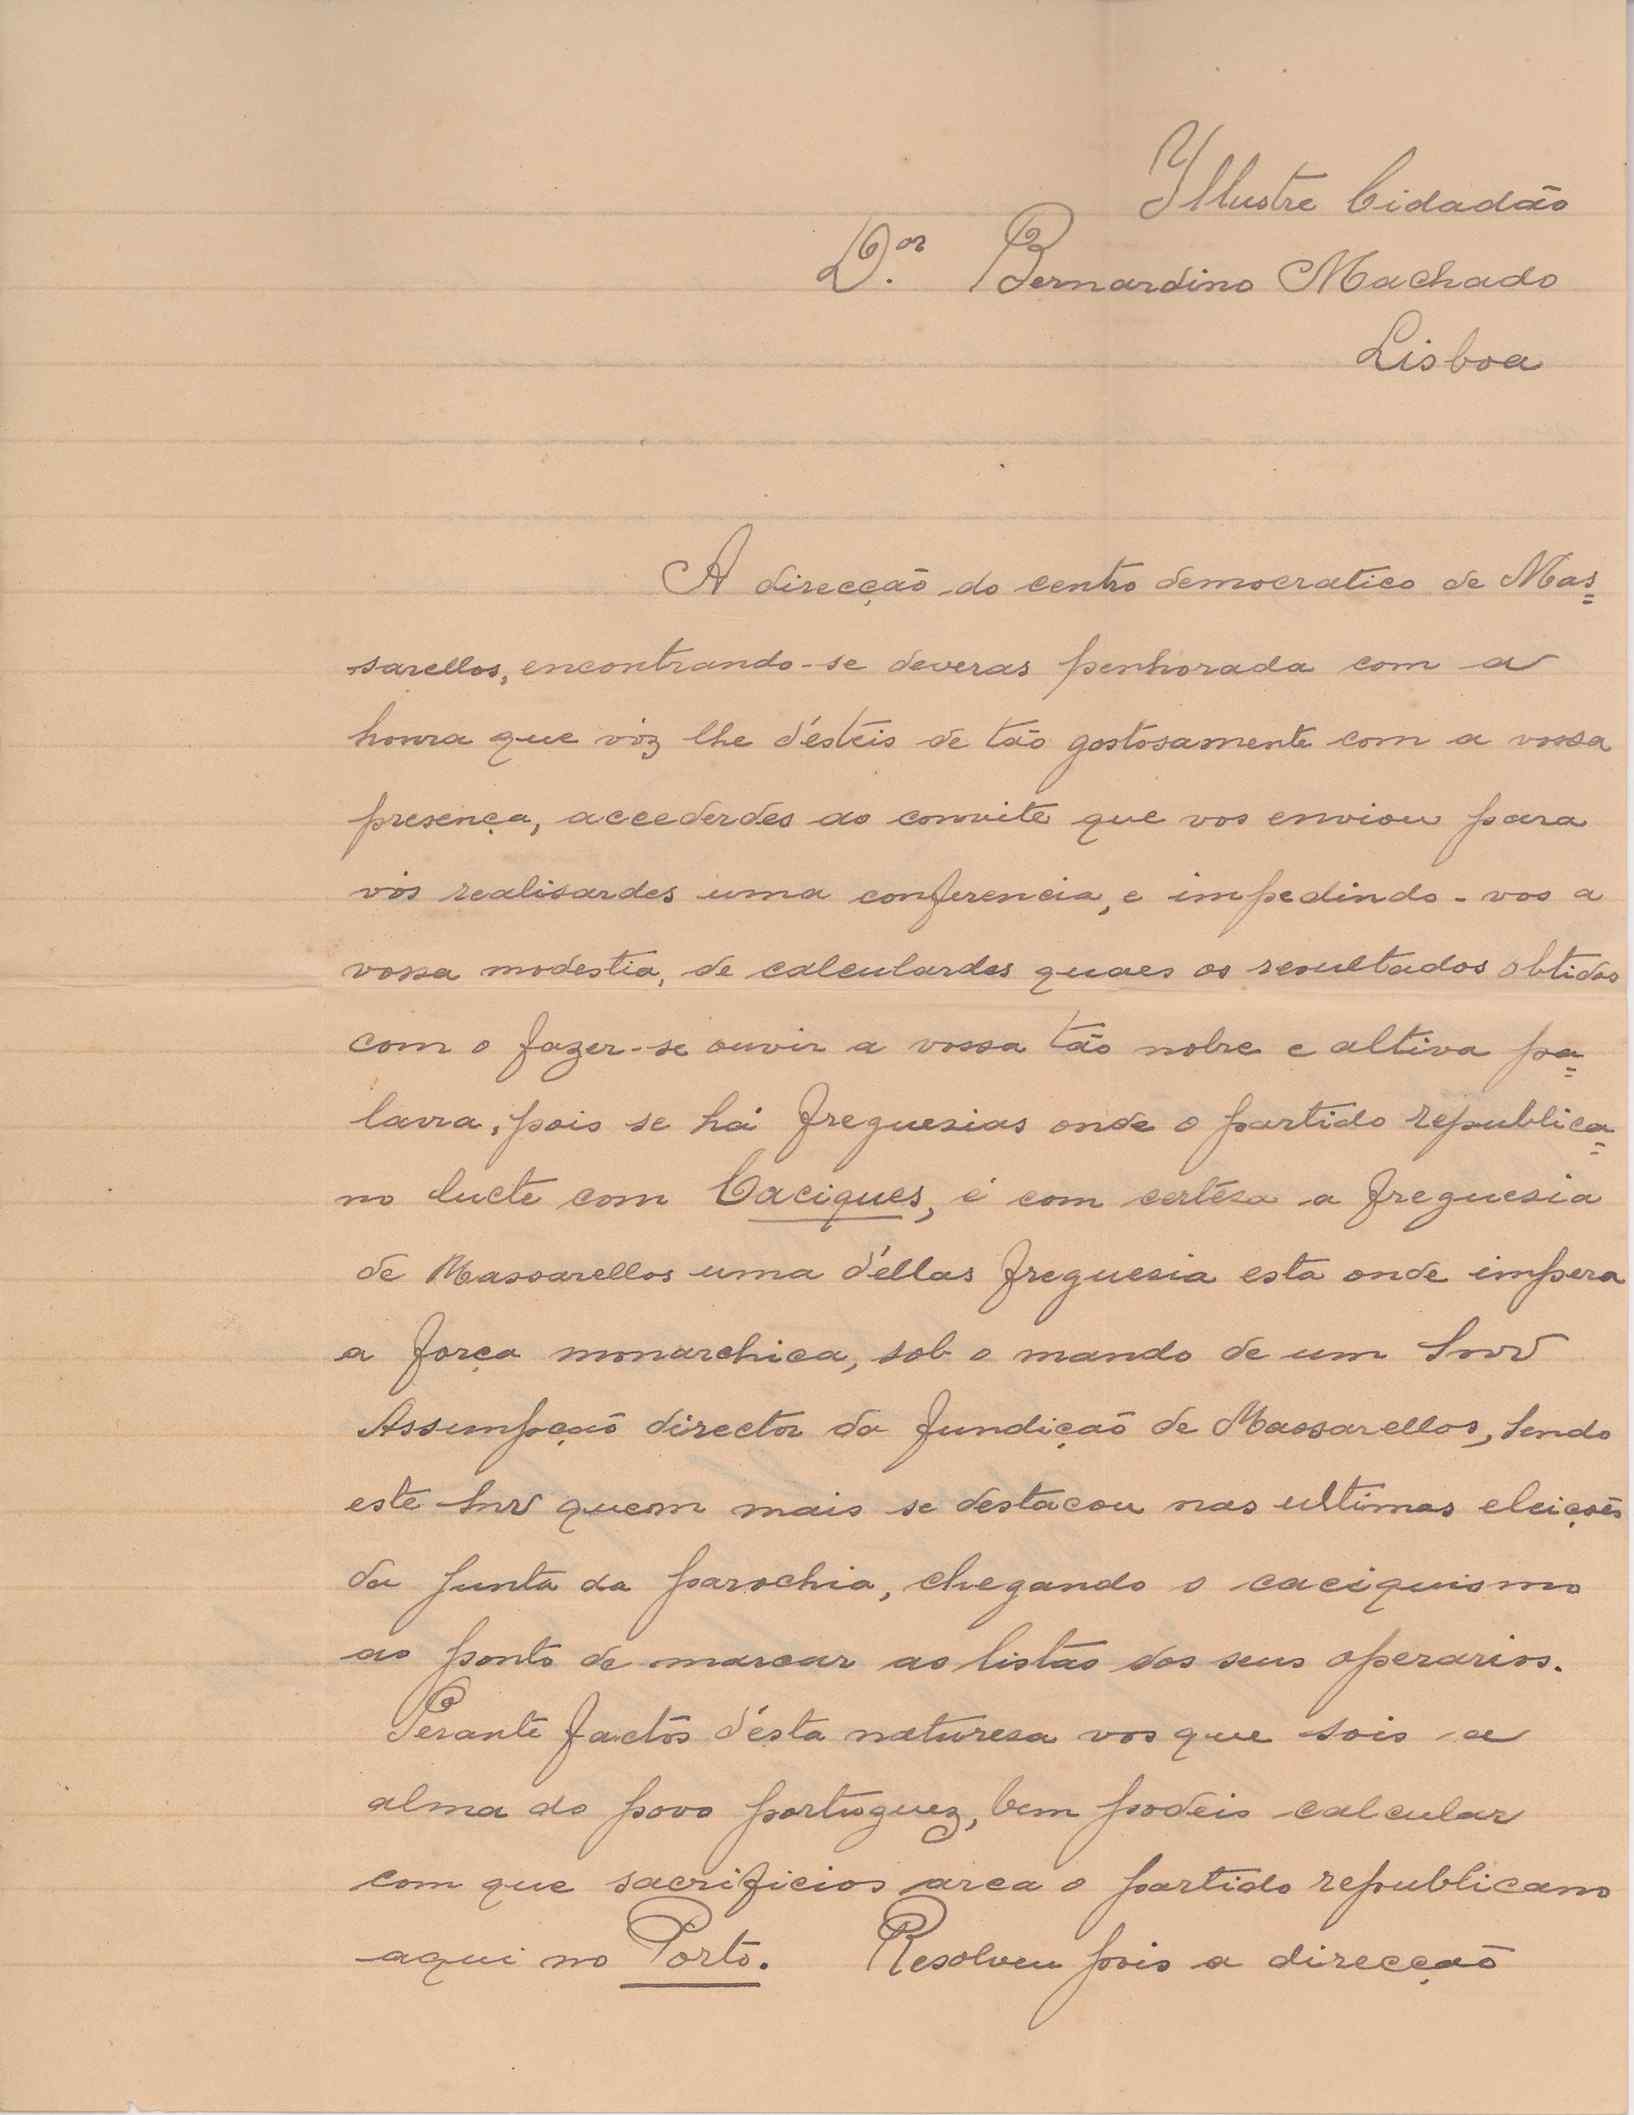 Illustre Cidadão
D.or Bernardino Machado
Lisboa
A direcção do centro democratico de Mas=
sarellos, encontrando-se deveras penhorada com a
honra que vóz lhe d'ésteis de tão gostosamente com a vossa
presença, accederdes ao convite que vos enviou para
vós realisardes uma conferencia, e impedindo-vos a
vossa modestia, de calculardes quaes os resultados obtidos
com o fazer-se ouvir a vossa tão nobre e altiva pa=
lavra, pois se há freguesias onde o partido republica=
no lucte com Caciques, é com certêsa a freguesia
de Massarellos uma d'éllas freguesia esta onde impera
a força monarchica, sob o mando de um Snr
Assumpção director da fundição de Massarellos, sendo
este Snr quem mais se destacou nas ultimas eleições
da junta da parochia, chegando o caciquismo
ao ponto de marcar as listas dos seus operarios.
Perante factos d'ésta naturesa vos que sois a
alma do povo portuguez, bem podeis calcular
com que sacrificios arca o partido republicano
aqui no Porto. Resolveu pois a direcção